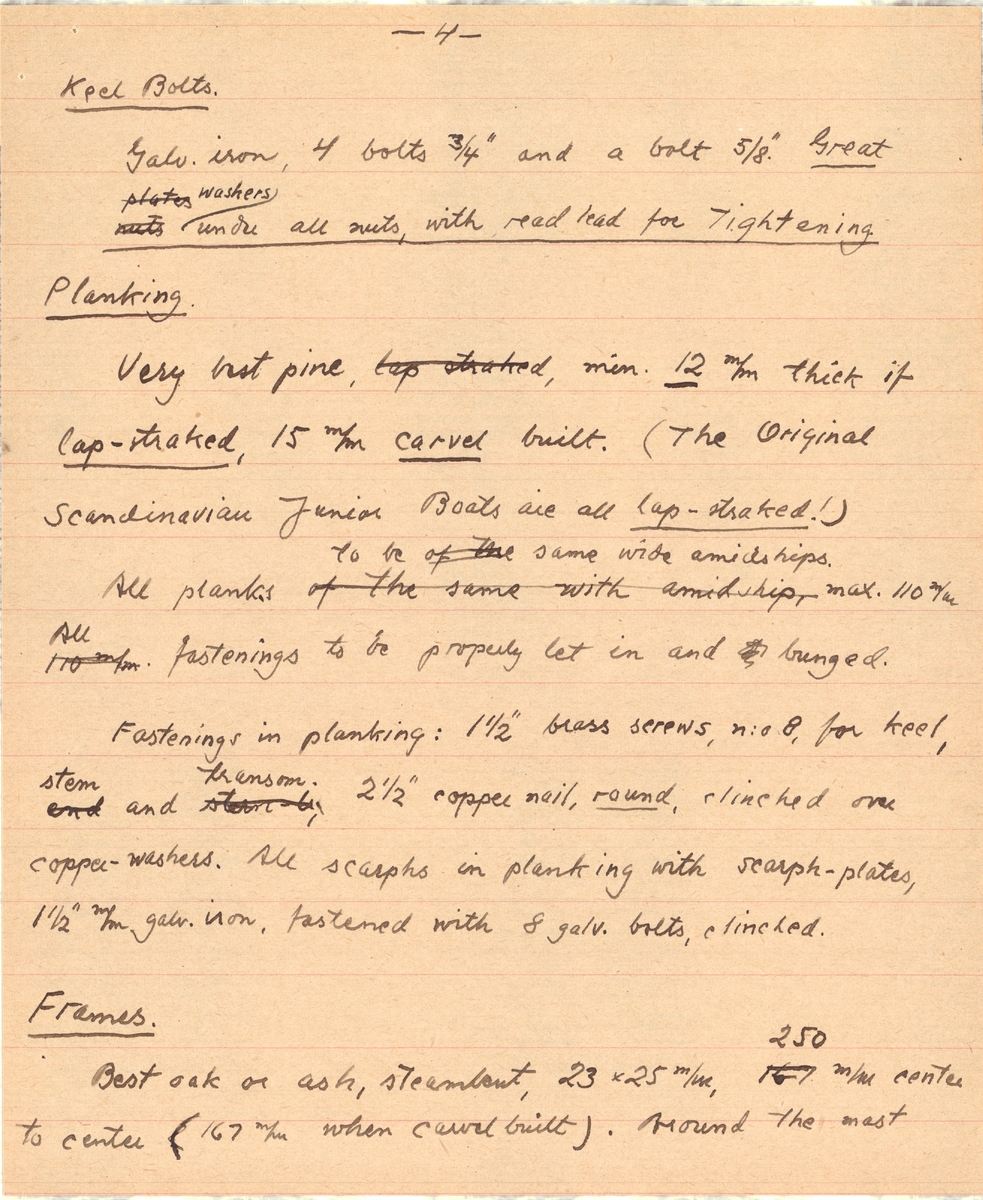 — 4 —
Keel Bolts.
Galv. iron, 4 bolts 3/4" and a bolt 5/8". Great
plates washers
nuts undre all nuts, with read lead for Tightening
Planking.
Very best pine, lap straked, min. 12 m/m thick if
lap-straked, 15 m/m carvel built. (The Original
Scandinavian Junior Boats are all lap-straked!)
to be of the same wide amidships.
All planks of the same with amidship, max. 110 m/m
All
110 m/m. fastenings to be properly let in and bunged.
Fastenings in planking: 1 1/2" brass screws, n:o 8, for keel,
stem transom.
end and stern-b, 2 1/2" copper nail, round, clinched over
copper-washers. All scarphs in planking with scarph-plates,
1 1/2" m/m galv. iron, fastened with 8 galv. bolts, clinched.
Frames.
250
Best oak or ash, steambent, 23 x 25 m/m, 167 m/m center
to center (167 m/m when carvel built). Around the mast